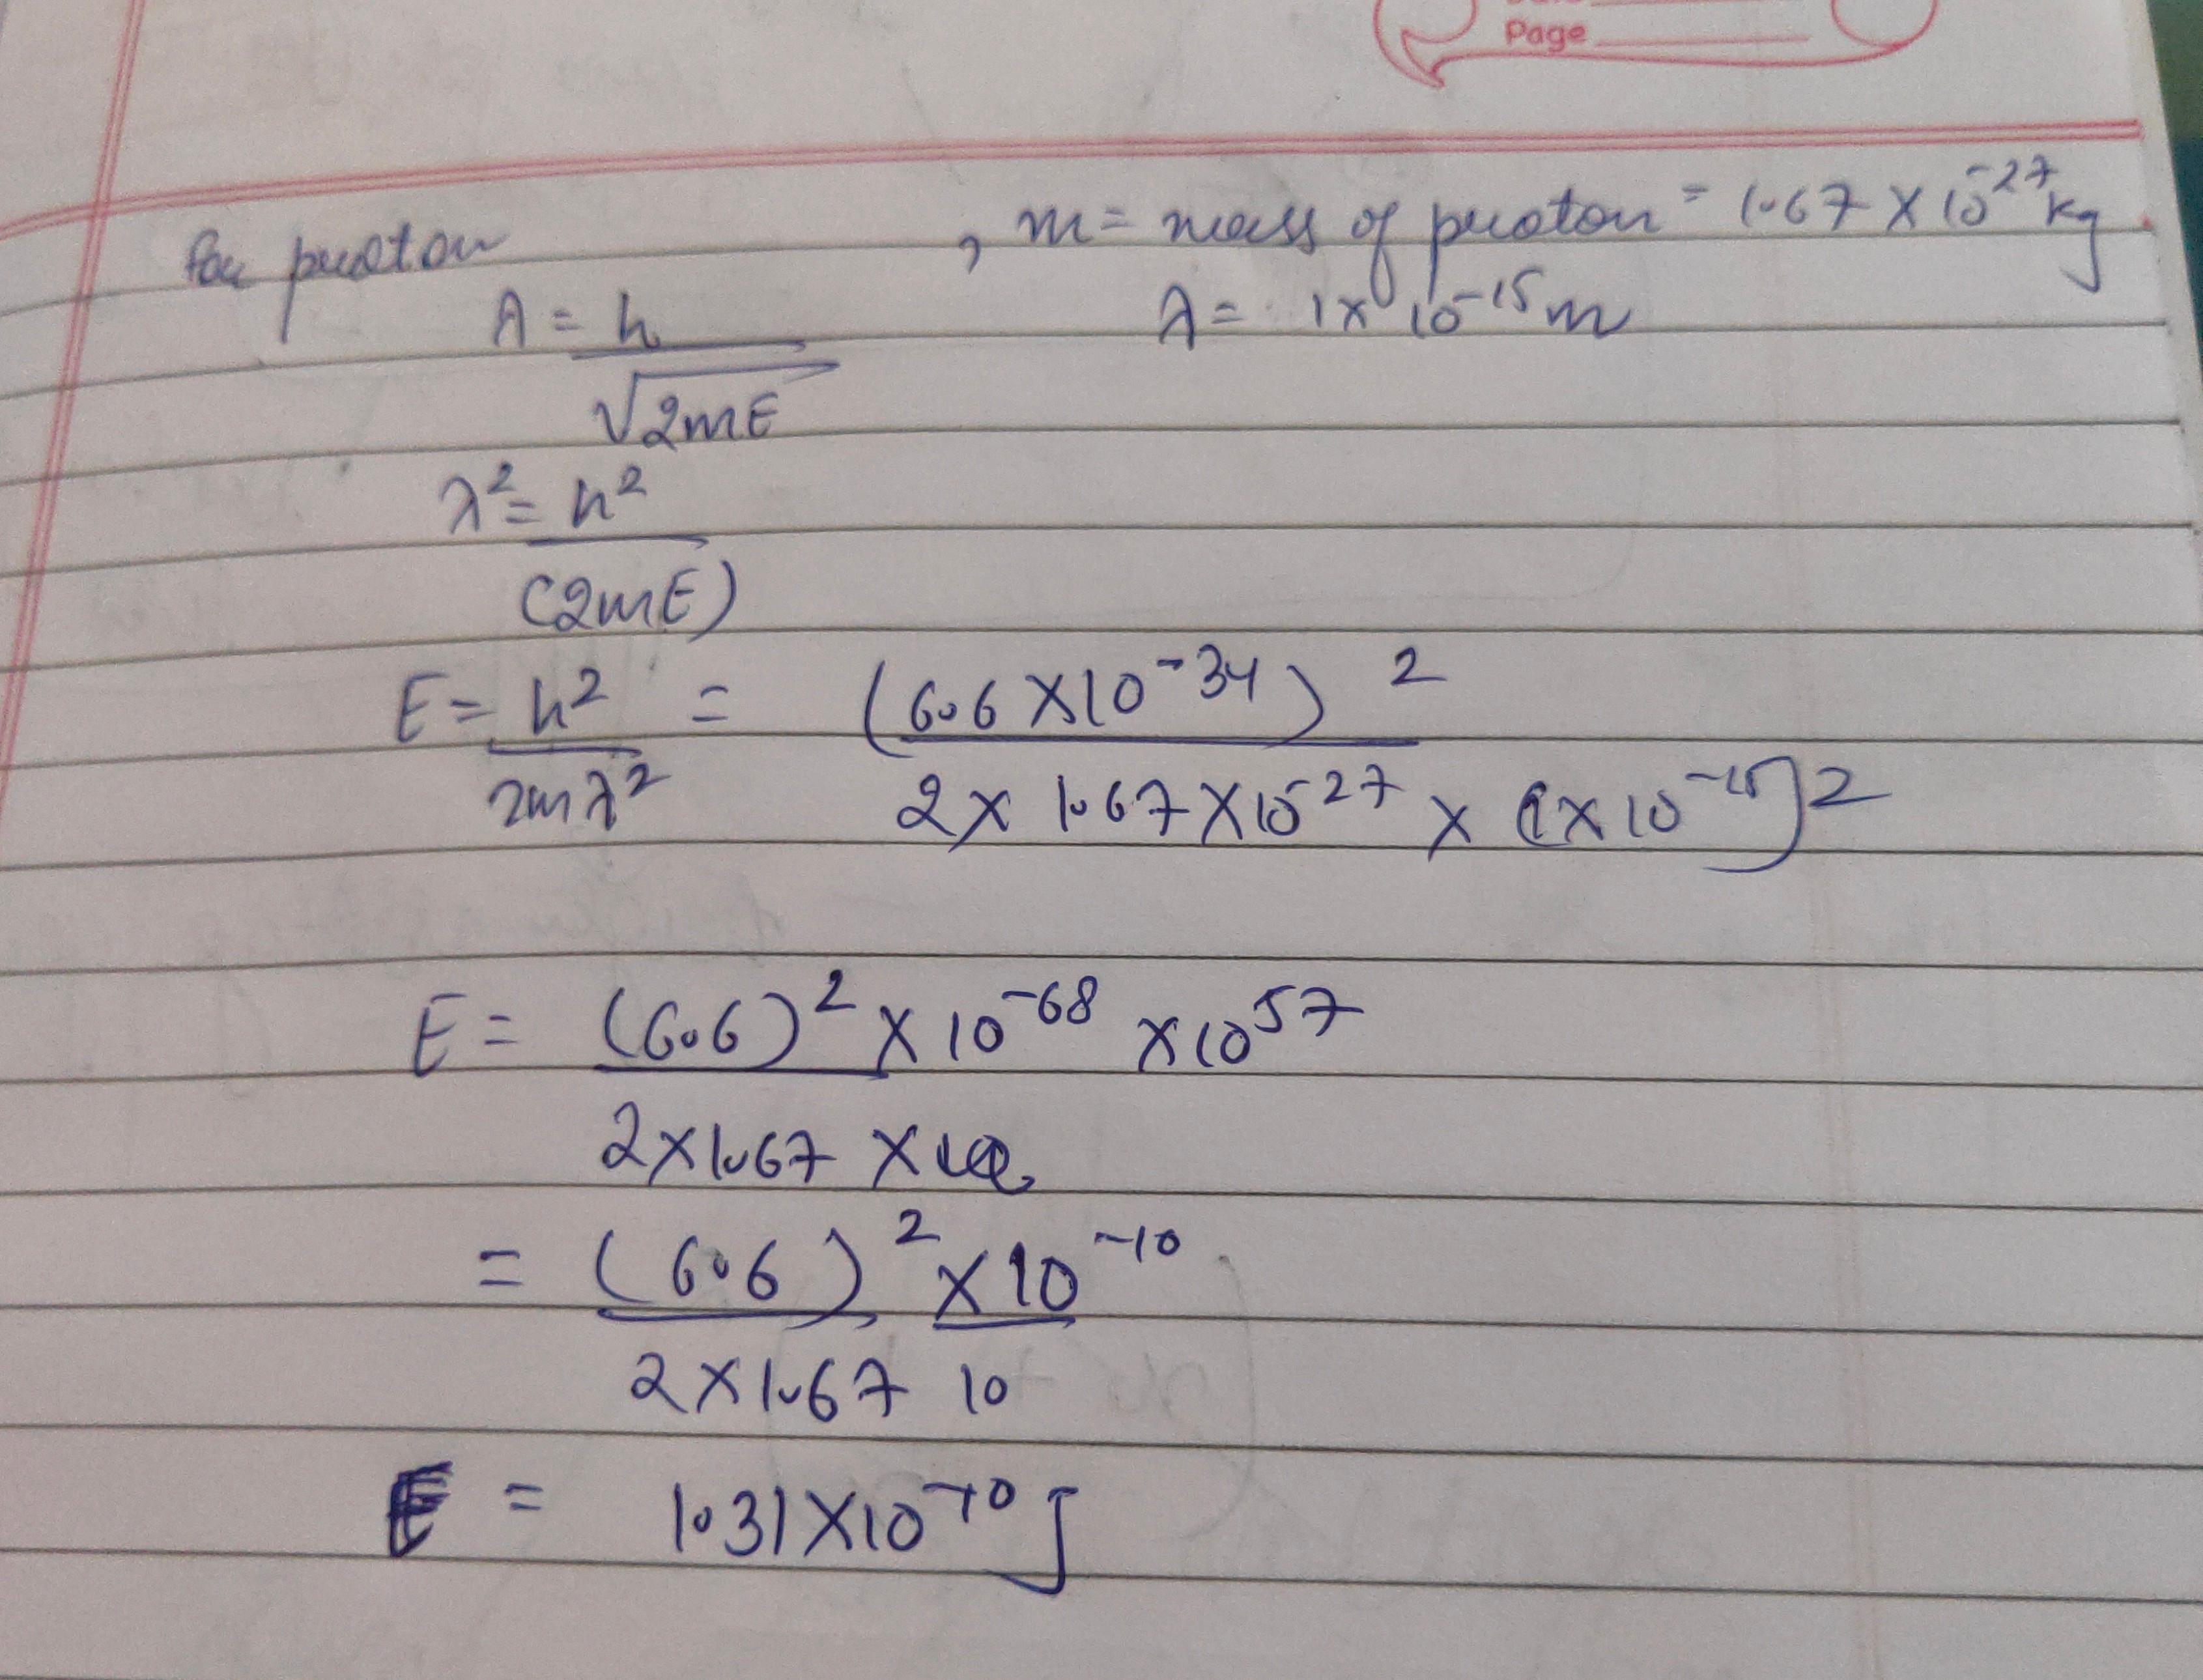 Page
for proton , m = mass of proton = 1.67 × 10⁻²⁷ kg
λ = h / √2mE λ = 1 × 10⁻¹⁵ m
λ² = h² / (2mE)
E = h² / 2mλ² = (6.6 × 10⁻³⁴)² / 2 × 1.67 × 10⁻²⁷ × (1 × 10⁻¹⁵)²
E = (6.6)² × 10⁻⁶⁸ × 10⁵⁷ / 2 × 1.67 ×
= (6.6)² × 10⁻¹⁰ / 2 × 1.67 10
E = 1.31 × 10⁻¹⁰ J